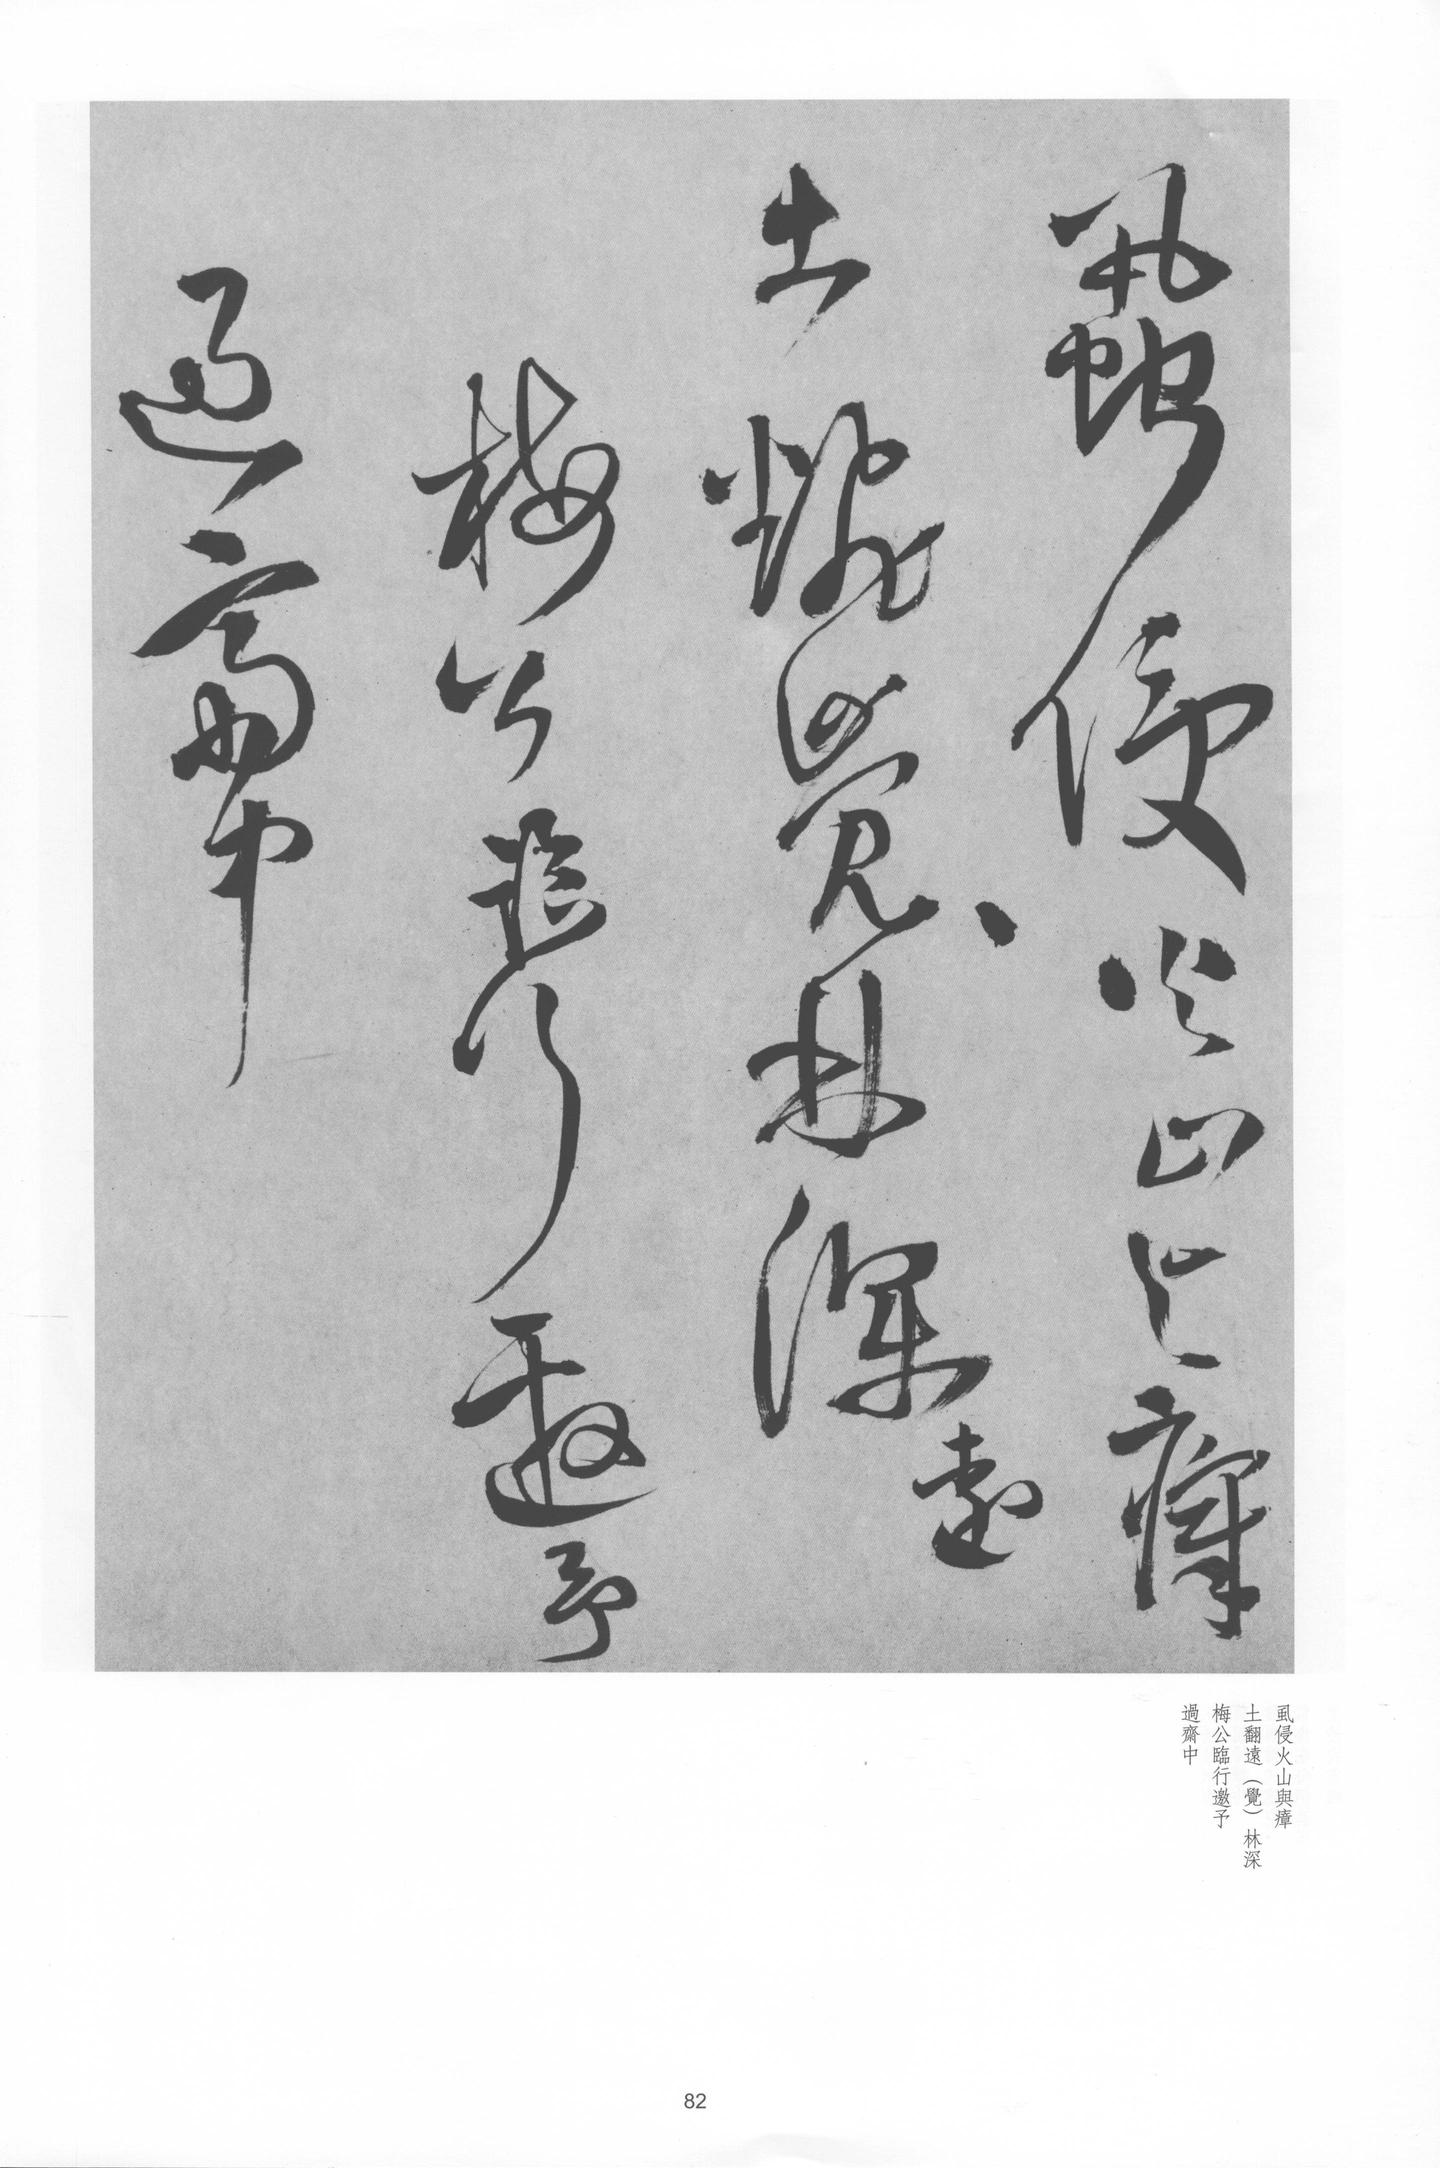 蝨侵火山與瘴
土翻覺林深
遠
梅公臨行邀予
過齋中
虱侵火山與瘴
土翻遠（覺）林深
梅公臨行邀予
過齋中
82